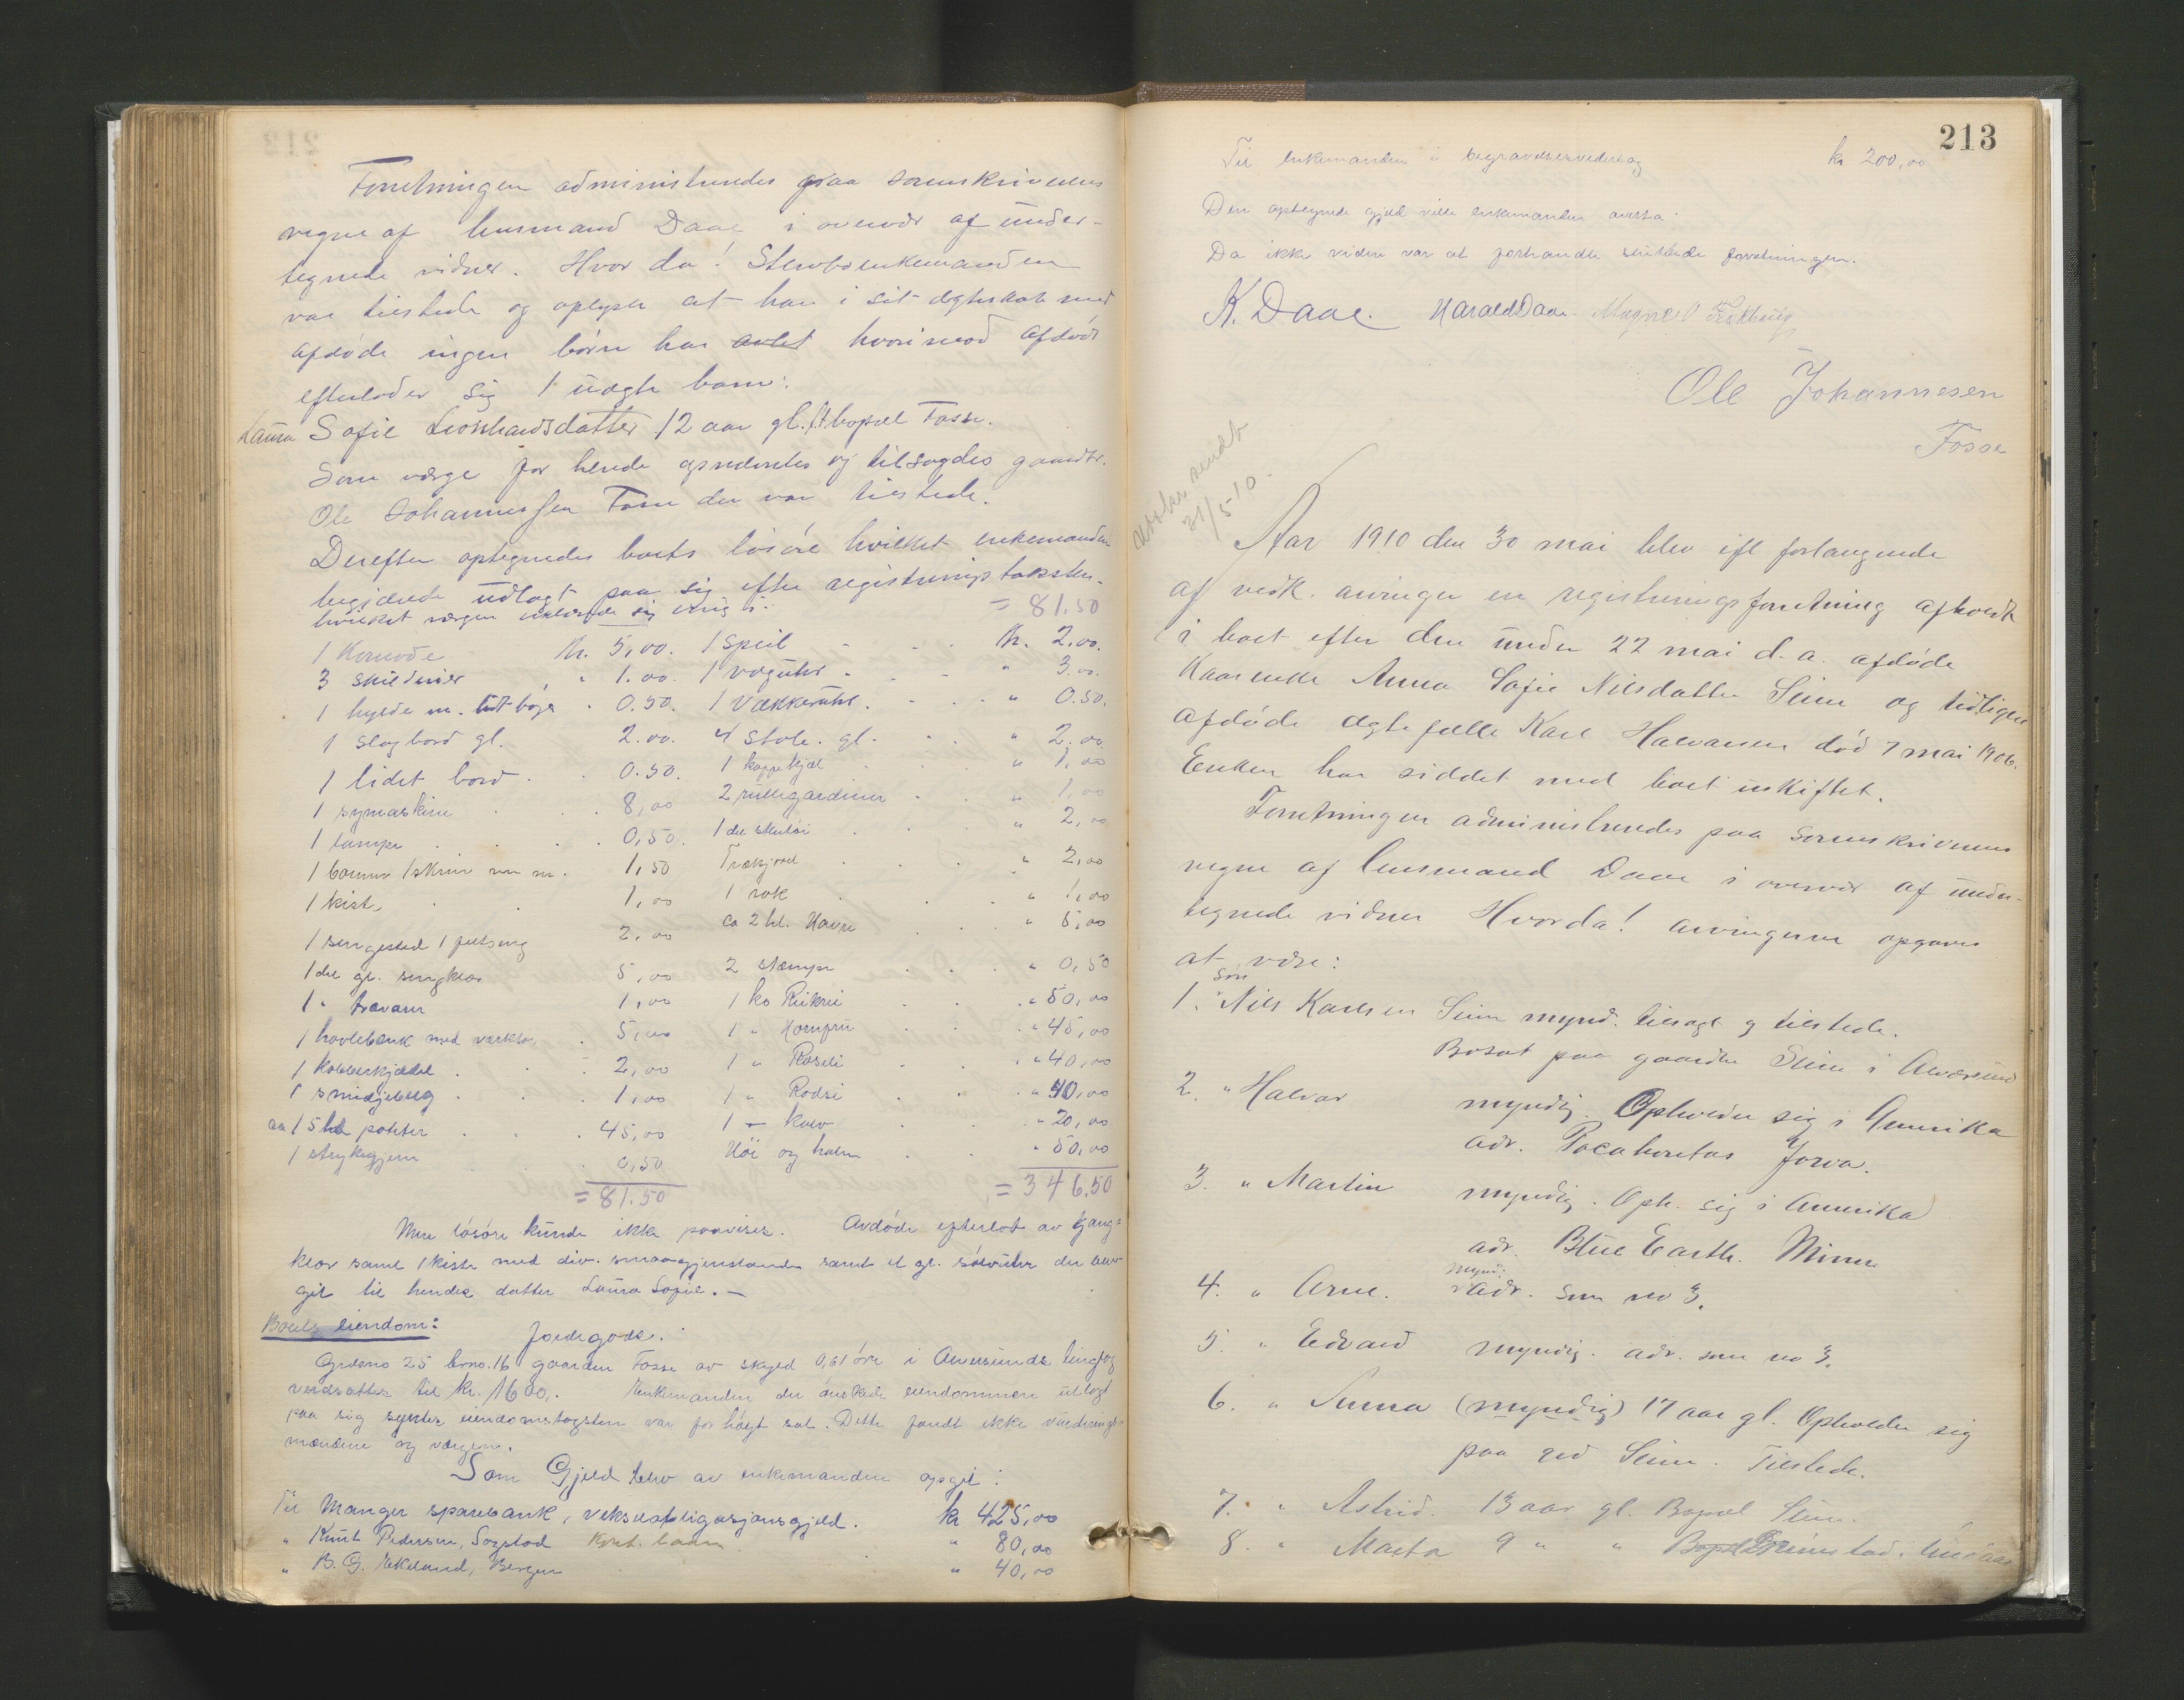 Forretningen administreredes paa sorenskriverens
vegne af lensmand Daae i overvær af under-
tegnede vidner. Hvor da! Stervboenkemanden
var tilstede og oplyste at han i sit ægteskab med
afdøde ingen børn har avlet hvorimod afdøde
efterlader sig 1 uægte barn:
Laura Sofie Leonhardsdatter 12 aar gl. bopæl Fosse.
Som værge for hende opnævntes og tilsagdes gaardbr.
Ole Johannessen Fosse der var tilstede.
Derefter optegnedes boets løsøre hvilket enkemanden
begjærede udlagt paa sig efter registreringstaksten.
hvilket værgen erklærede sig enig i: = 81.50
1 Komode Kr. 5,00. 1 speil Kr. 2.00.
3 skilderier " 1.00. 1 væguhr " 3.00.
1 hylde m. lidt bøger 0.50. 1 Vækkeruhr " 0.50.
1 slagbord gl. 2.00. 4 stole. gl. " 2.00
1 lidet bord 0.50. 1 kaffekjel " 1,00
1 symaskine 8,00 2 rullegardiner " 1,00
1 lampe 0,50. 1 del skuløi " 2,00
1 bomme 1 skrin m m. 1,50 Trækjørel " 2,00
1 kiste 1,00 1 rok " 1,00
1 sengested 1 feltseng 2,00 ca 2 hl. Havre " 5,00
1 del gl. sengklær 5,00 2 stamper " 0,50
1 " trævarer 1,00 1 ko Rikrei " 50,00
1 høvlebænk med verktøi 5,00 1 " Hornprii " 45,00
1 kobberkjedel 2,00 1 " Roslei " 40,00
1 smidjebelg 1,00 1 " Rødsi " 40,00
ca 15 hl poteter 45,00 1 - kalv " 20,00
1 strykejern 0,50 Høi og halm " 50,00
= 81.50 = 346,50
Mere løsøre kunde ikke paavises. Avdøde efterlot av gang-
klær samt 1 kiste med div. smaagjenstande samt et gl. sølvuhr der blev
git til hendes datter Laura Sofie. —
Boets eiendom: Jordegods.
Grdsno 25 brno. 16 gaarden Fosse av skyld 0,61 øre i Alversunds tinglag
verdsattes til kr. 1600,. Enkemanden der ønskede eiendommen utlagt
paa sig syntes eiendomstaksten var for høgt sat. Dette fandt ikke vurderings-
mændene og værgen.
Som Gjeld blev av enkemanden opgit:
Til Manger sparebank, vekselobligasjonsgjeld. kr 425,00
" Knut Pedersen, Sogstad Kont. laan " 80,00
" B. G. Ekeland, Bergen " 40,00
213
Til enkemanden i begravelsesvederlag kr 200,00
Den optegnede gjeld vilde enkemanden overta.
Da ikke videre var at forhandle sluttede forretningen.
K. Daae. Harald Daae. Magne O
Ole Johannesen
Fosse
sendt
31/5 10.
Aar 1910 den 30 mai blev ifl forlangende
af vedk. arvinger en registreringsforretning afholdt
i boet efter den under 22 mai d. a. afdøde
Kaarenke Anna Sofie Nilsdatter Seim og tidligere
afdøde ægtefælle Karl Halvorsen død 7 mai 1906.
Enken har siddet med boet uskiftet.
Forretningen administreredes paa sorenskriverens
vegne af lensmand Daae i overvær af under-
tegnede vidner Hvorda! arvingerne opgaves
at være:
1. Søn Nils Karlsen Seim mynd. tilsagt og tilstede.
Bosat paa gaarden Seim i Alversund
2. " Halvor myndig. Opholder sig i Amerika
adr. Pocahontas Jowa.
3. " Martin myndig. Oph. sig i Amerika
adr. Blue Earth. Minn
4. " Arne. mynd. adr. som no 3.
5. " Edvard myndig. adr. som no 3.
6. " Anna (myndig) 17 aar gl. Opholder sig
paa grd Seim. Tilstede.
7. " Astrid. 13 aar gl. Bopæl Seim.
8. " Marta 9 " " Bopæl Grimstad i Lindaas